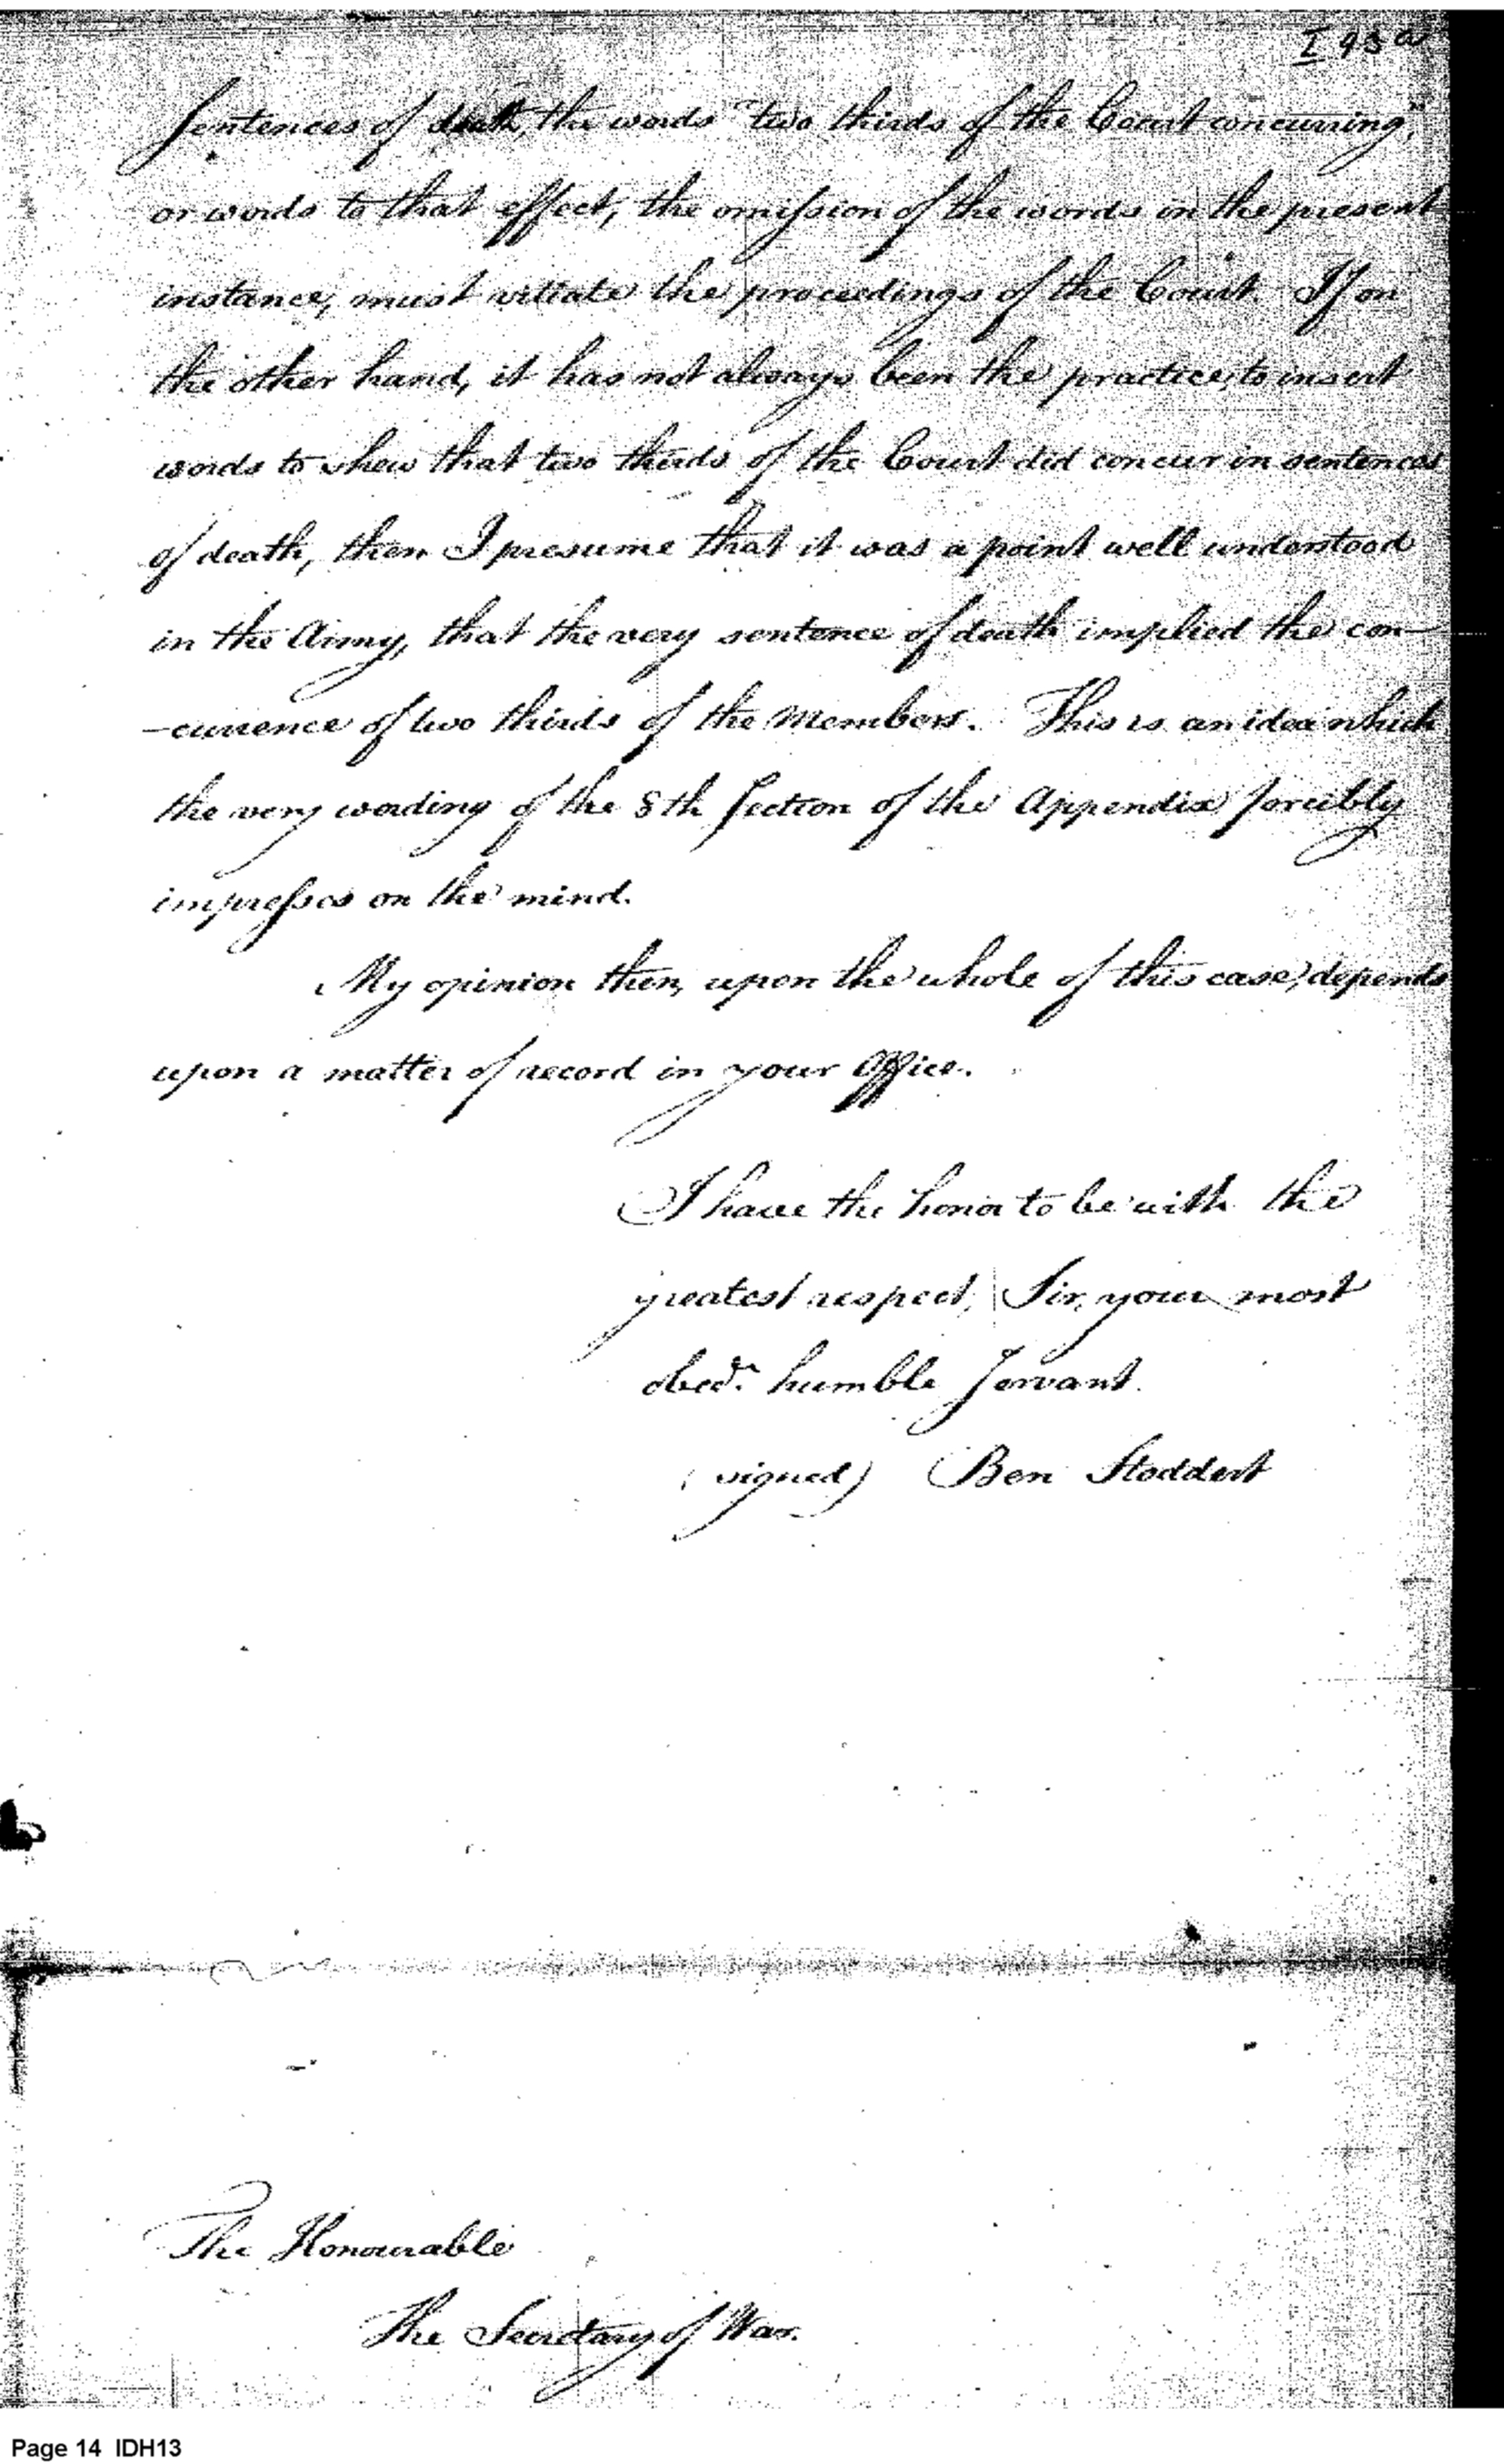 I 93 a
Sentences of death, the words "two thirds of the Court concurring",
or words to that effect, the omission of the words in the present
instance, must vitiate the proceedings of the Court. If on
the other hand, it has not always been the practice, to insert
words to shew that two thirds of the Court did concur in sentences
of death, then I presume that it was a point well understood
in the Army, that the very sentence of death implied the con-
-currence of two thirds of the Members. This is an idea which
the very wording of the 8th Section of the Appendix forcibly
impresses on the mind.
My opinion then, upon the whole of this case, depends
upon a matter of record in your Office.
I have the honor to be with the
greatest respect, Sir, your most
obedt. humble Servant.
(signed) Ben Stoddert
The Honourable
The Secretary of War.
Page 14 IDH13